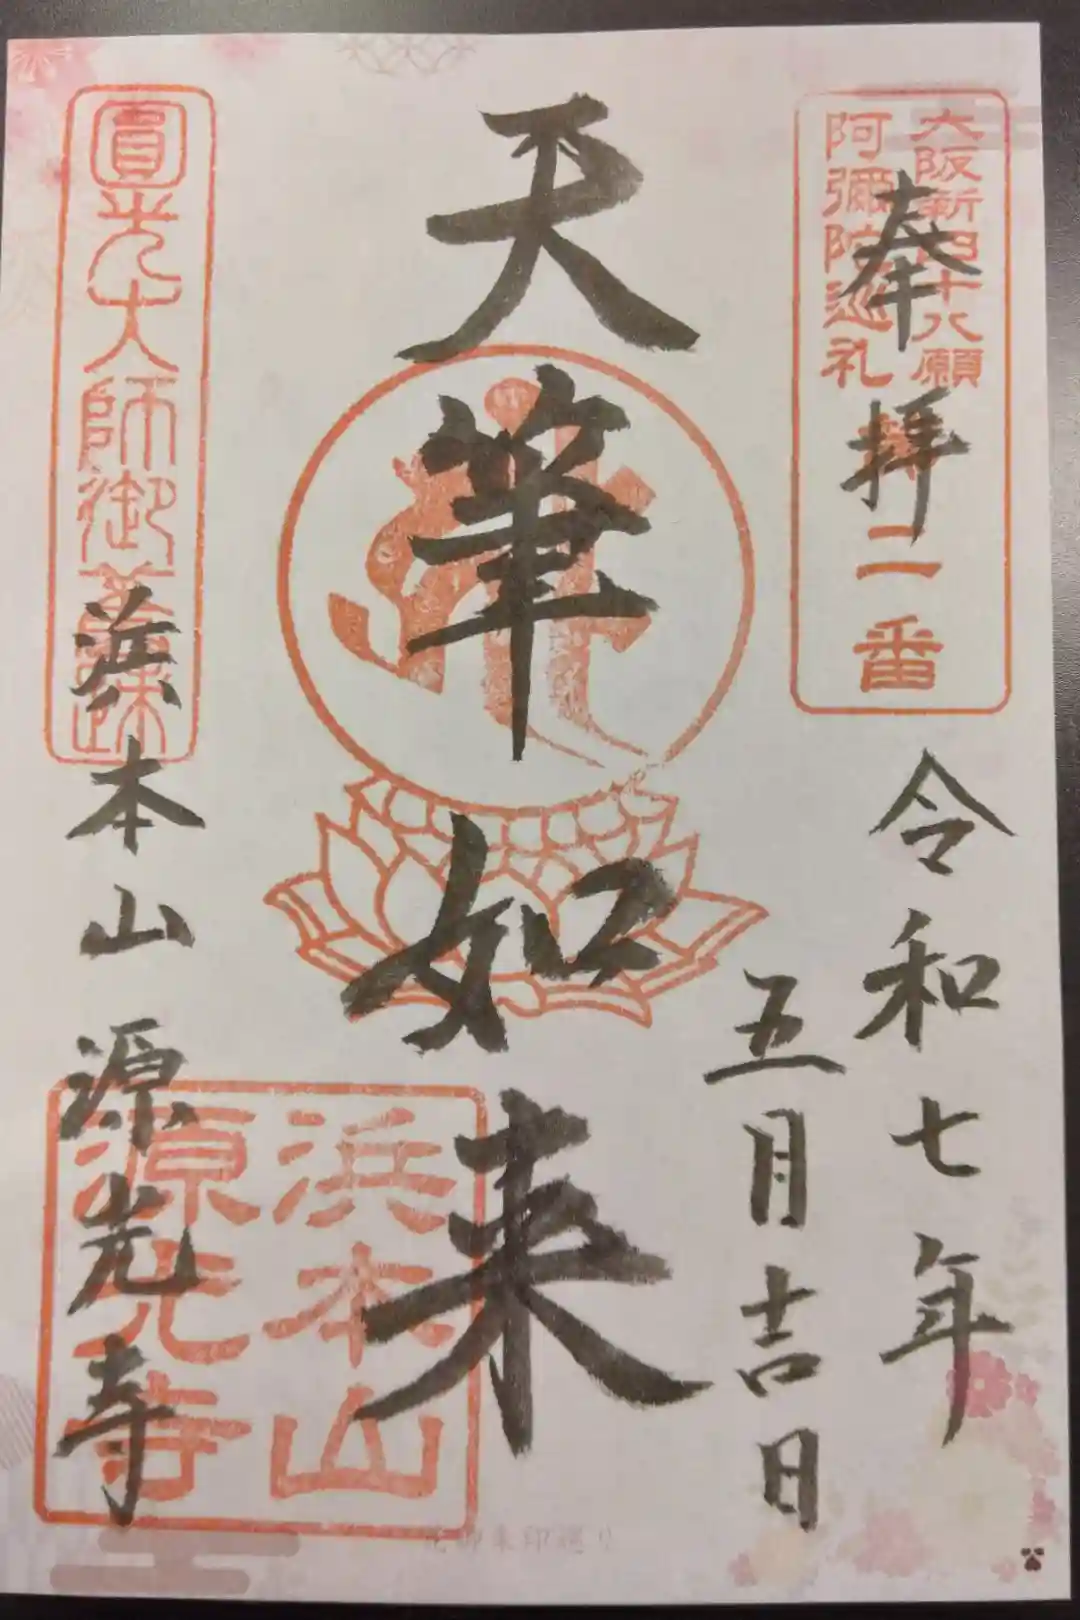 奉拝
大阪新四十八願
阿彌陀巡礼
第二番
令和七年
五月吉日
天筆如来
圓光大師御舊跡
浜本山源光寺
浜本山
源光寺